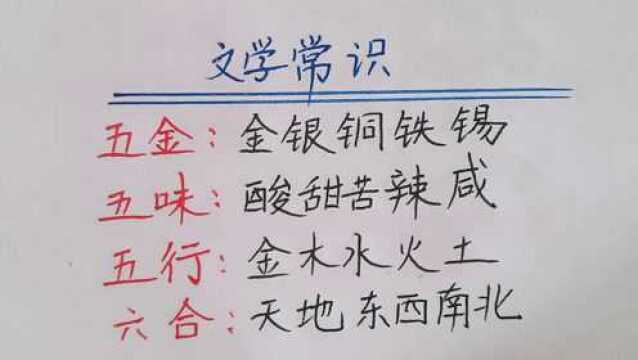 文学常识
五金：金银铜铁锡
五味：酸甜苦辣咸
五行：金木水火土
六合：天地东西南北